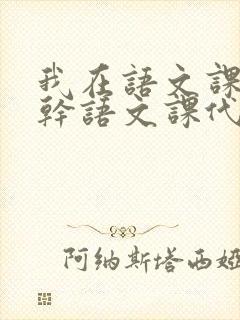 我在語文課
幹語文課代
阿納斯塔西婭